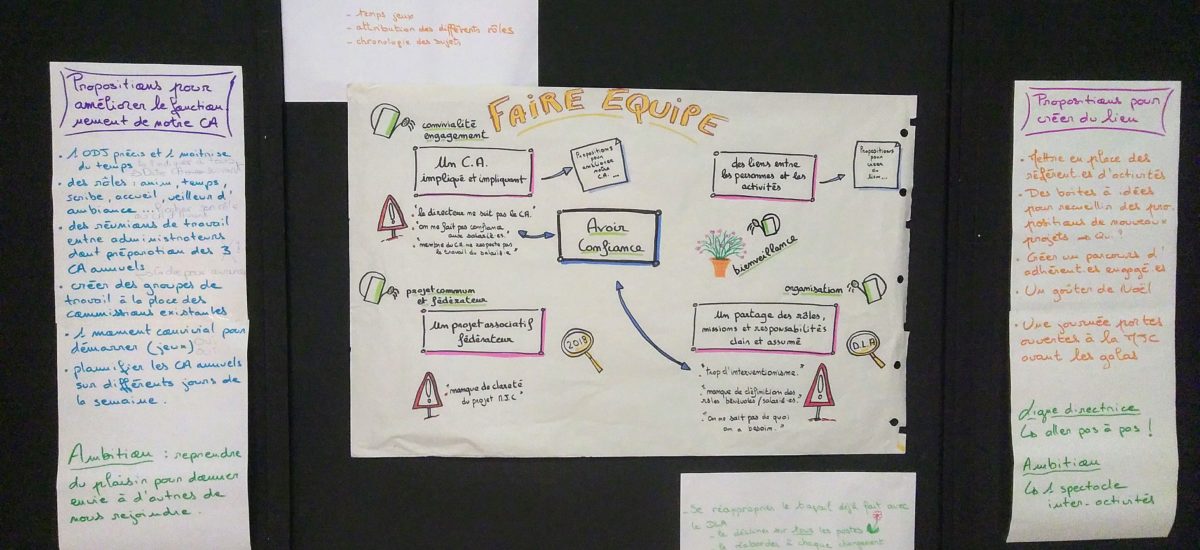 - temps jeux
- attribution des différents rôles
- chronologie des sujets
Propositions pour
améliorer le fonction
nement de notre CA
• 1 ODJ précis et 1 maitrise
du temps
• des rôles : anim, temps,
scribe, accueil, veilleur d'
ambiance ...
• des réunions de travail
entre administrateurs
dont préparation des 3
CA annuels
• créer des groupes de
travail à la place des
commissions existantes
• 1 moment convivial pour
démarrer (jeux)
• plannifier les CA annuels
sur différents jours de
la semaine.
Ambition : reprendre
du plaisir pour donner
envie à d'autres de
nous rejoindre.
FAIRE EQUIPE
convivialité
engagement
Un C.A.
impliqué et impliquant
Propositions
pour
améliorer
notre
CA ...
"le directeur ne suit pas le CA."
"on ne fait pas confiance
aux salarié.es."
"membre du CA ne respecte pas
le travail du salarié.e"
des liens entre
les personnes et les
activités
Propositions
pour
créer
du
lien ...
Avoir
Confiance
bienveillance
projet commun
et fédérateur
Un projet associatif
fédérateur
2018
"manque de clareté
du projet MJC"
organisation
Un partage des rôles,
missions et responsabilités
clair et assumé
D.L.A
"trop d'interventionisme."
"manque de définition des
rôles bénévoles/salarié.es."
"On ne sait pas de quoi
on a besoin."
Propositions pour
créer du lien
• Mettre en place des
référent.es d'activités
• Des boites à idées
pour recueillir des pro-
positions de nouveaux
projets → Qui ?
• Créer un parcours d'
adhérent.es engagé.es
• Un goûter de Noël
• Une journée portes
ouvertes à la MJC
avant les galas
Ligne directrice
↳ aller pas à pas !
Ambition
↳ 1 spectacle
inter-activités
- Se réapproprier le travail déjà fait avec
le DLA
- le décliner sur tous les postes
- le réaborder à chaque changement